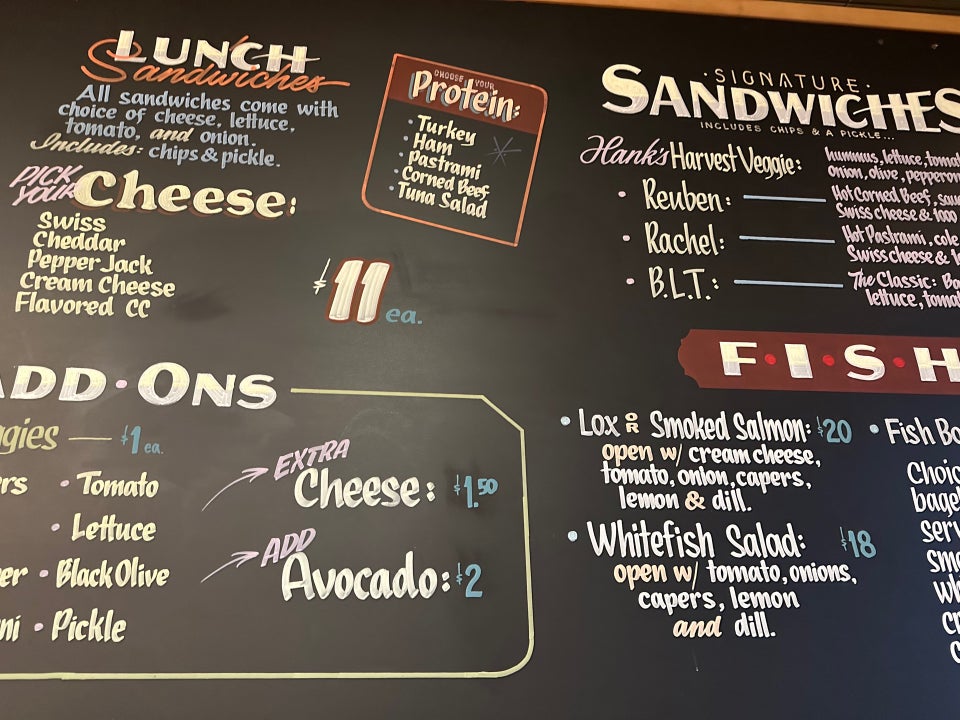 LUNCH
Sandwiches
All sandwiches come with
choice of cheese, lettuce,
tomato, and onion.
Includes: chips & pickle.
PICK
YOUR
Cheese:
Swiss
Cheddar
Pepper Jack
Cream Cheese
Flavored CC
CHOOSE YOUR
Protein:
• Turkey
• Ham
• Pastrami
• Corned Beef
• Tuna Salad
$11 ea.
ADD • ONS
$1 ea.
• Tomato
• Lettuce
• Black Olive
• Pickle
EXTRA
Cheese: $1.50
ADD
Avocado: $2
• SIGNATURE •
SANDWICHES
INCLUDES CHIPS & A PICKLE...
Hank's Harvest Veggie: hummus, lettuce, tomat
onion, olive, pepperon
• Reuben: Hot Corned Beef, sau
Swiss cheese & 1000
• Rachel: Hot Pastrami, cole
Swiss cheese &
• B.L.T.: The Classic: Ba
lettuce, tomat
F•I•S•H
• Lox OR Smoked Salmon: $20
open w/ cream cheese,
tomato, onion, capers,
lemon & dill.
• Whitefish Salad: $18
open w/ tomato, onions,
capers, lemon
and dill.
• Fish Bo
Choic
bagel
serv
smo
wh
cr